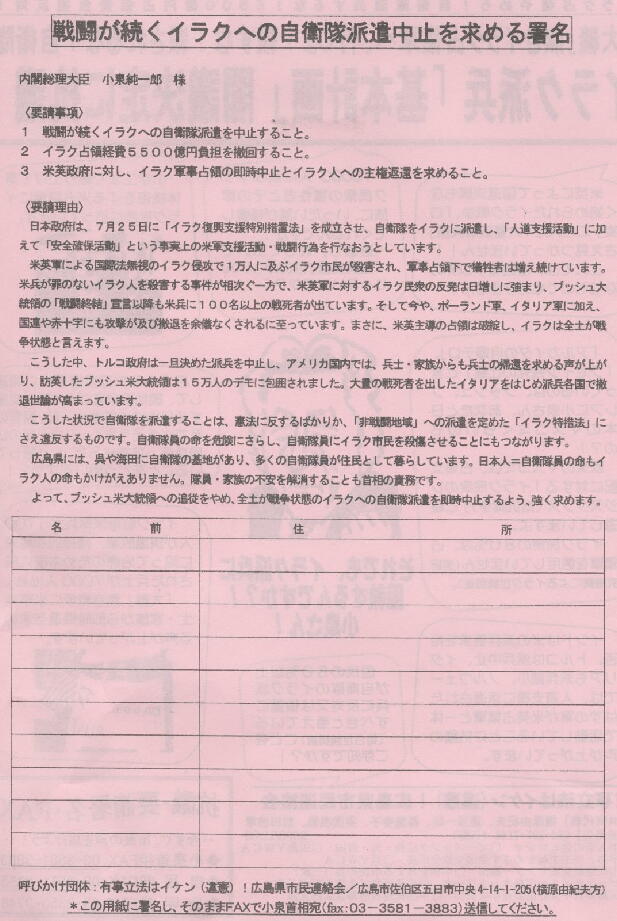 戦闘が続くイラクへの自衛隊派遣中止を求める署名
内閣総理大臣　小泉純一郎　様
〈要請事項〉
１　戦闘が続くイラクへの自衛隊派遣を中止すること。
２　イラク占領経費５５００億円負担を撤回すること。
３　米英政府に対し、イラク軍事占領の即時中止とイラク人への主権返還を求めること。
〈要請理由〉
日本政府は、７月２５日に「イラク復興支援特別措置法」を成立させ、自衛隊をイラクに派遣し、「人道支援活動」に加
えて「安全確保活動」という事実上の米軍支援活動・戦闘行為を行なおうとしています。
米英軍による国際法無視のイラク侵攻で１万人に及ぶイラク市民が殺害され、軍事占領下で犠牲者は増え続けています。
米兵が罪のないイラク人を殺害する事件が相次ぐ一方で、米英軍に対するイラク民衆の反発は日増しに強まり、ブッシュ大
統領の「戦闘終結」宣言以降も米兵に１００名以上の戦死者が出ています。そして今や、ポーランド軍、イタリア軍に加え、
国連や赤十字にも攻撃が及び撤退を余儀なくされるに至っています。まさに、米英主導の占領は破綻し、イラクは全土が戦
争状態と言えます。
こうした中、トルコ政府は一旦決めた派兵を中止し、アメリカ国内では、兵士・家族からも兵士の帰還を求める声が上が
り、訪英したブッシュ米大統領は１５万人のデモに包囲されました。大量の戦死者を出したイタリアをはじめ派兵各国で撤
退世論が高まっています。
こうした状況で自衛隊を派遣することは、憲法に反するばかりか、「非戦闘地域」への派遣を定めた「イラク特措法」に
さえ違反するものです。自衛隊員の命を危険にさらし、自衛隊員にイラク市民を殺傷させることにもつながります。
広島県には、呉や海田に自衛隊の基地があり、多くの自衛隊員が住民として暮らしています。日本人＝自衛隊員の命もイ
ラク人の命もかけがえありません。隊員・家族の不安を解消することも首相の責務です。
よって、ブッシュ米大統領への追従をやめ、全土が戦争状態のイラクへの自衛隊派遣を即時中止するよう、強く求めます。
名　前　住　所
呼びかけ団体：有事立法はイケン（違憲）！広島県市民連絡会／広島市佐伯区五日市中央4-14-1-205（横原由紀夫方）
＊この用紙に署名し、そのままFAXで小泉首相宛（fax：03−3581−3883）送信してください。